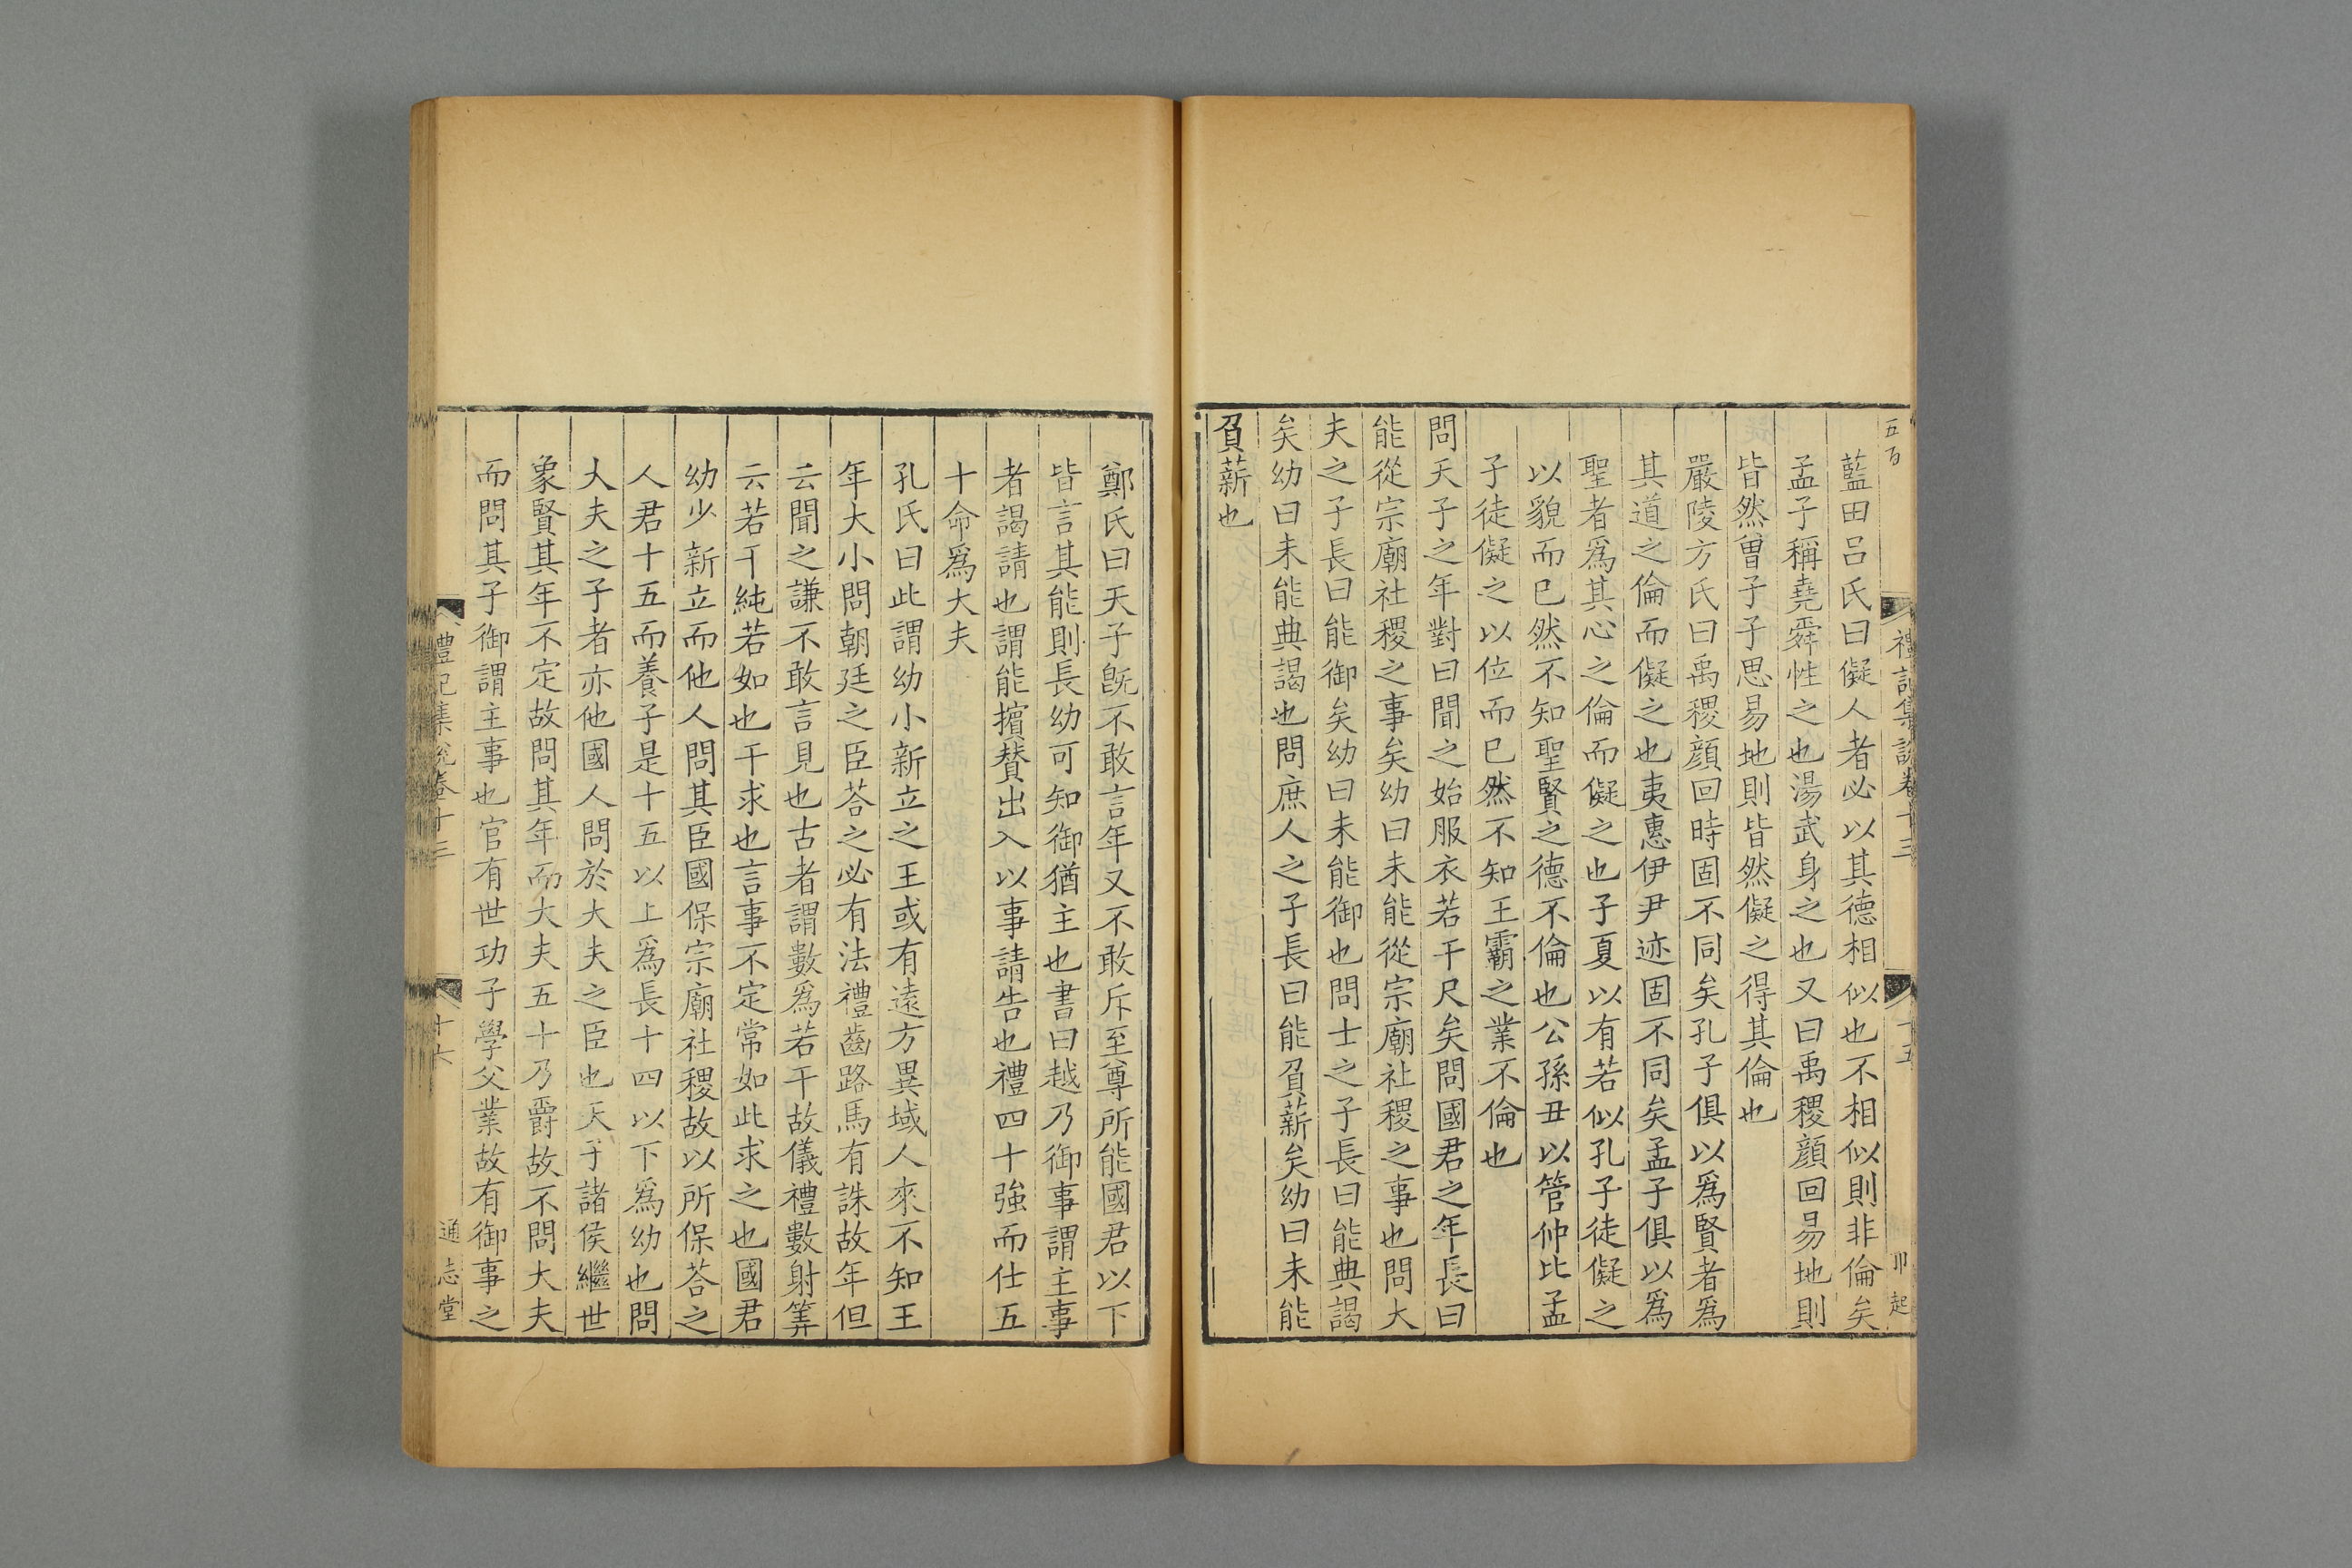 五百
禮記集說卷十三
十五
起
藍田呂氏曰儗人者必以其德相似也不相似則非倫矣
孟子稱堯舜性之也湯武身之也又曰禹稷顔回易地則
皆然曾子子思易地則皆然儗之得其倫也
嚴陵方氏曰禹稷顔回時固不同矣孔子俱以爲賢者爲
其道之倫而儗之也夷惠伊尹迹固不同矣孟子俱以爲
聖者爲其心之倫而儗之也子夏以有若似孔子徒儗之
以貌而已然不知聖賢之德不倫也公孫丑以管仲比孟
子徒儗之以位而已然不知王霸之業不倫也
問天子之年對曰聞之始服衣若干尺矣問國君之年長曰
能從宗廟社稷之事矣幼曰未能從宗廟社稷之事也問大
夫之子長曰能御矣幼曰未能御也問士之子長曰能典謁
矣幼曰未能典謁也問庶人之子長曰能負薪矣幼曰未能
負薪也
鄭氏曰天子旣不敢言年又不敢斥至尊所能國君以下
皆言其能則長幼可知御猶主也書曰越乃御事謂主事
者謁請也謂能擯贊出入以事請告也禮四十強而仕五
十命爲大夫
孔氏曰此謂幼小新立之王或有遠方異域人來不知王
年大小問朝廷之臣荅之必有法禮齒路馬有誅故年但
云聞之謙不敢言見也古者謂數爲若干故儀禮數射筭
云若干純若如也干求也言事不定常如此求之也國君
幼少新立而他人問其臣國保宗廟社稷故以所保荅之
人君十五而養子是十五以上爲長十四以下爲幼也問
大夫之子者亦他國人問於大夫之臣也天子諸侯繼世
象賢其年不定故問其年而大夫五十乃爵故不問大夫
而問其子御謂主事也官有世功子學父業故有御事之
禮記集說卷十三
十六
通志堂